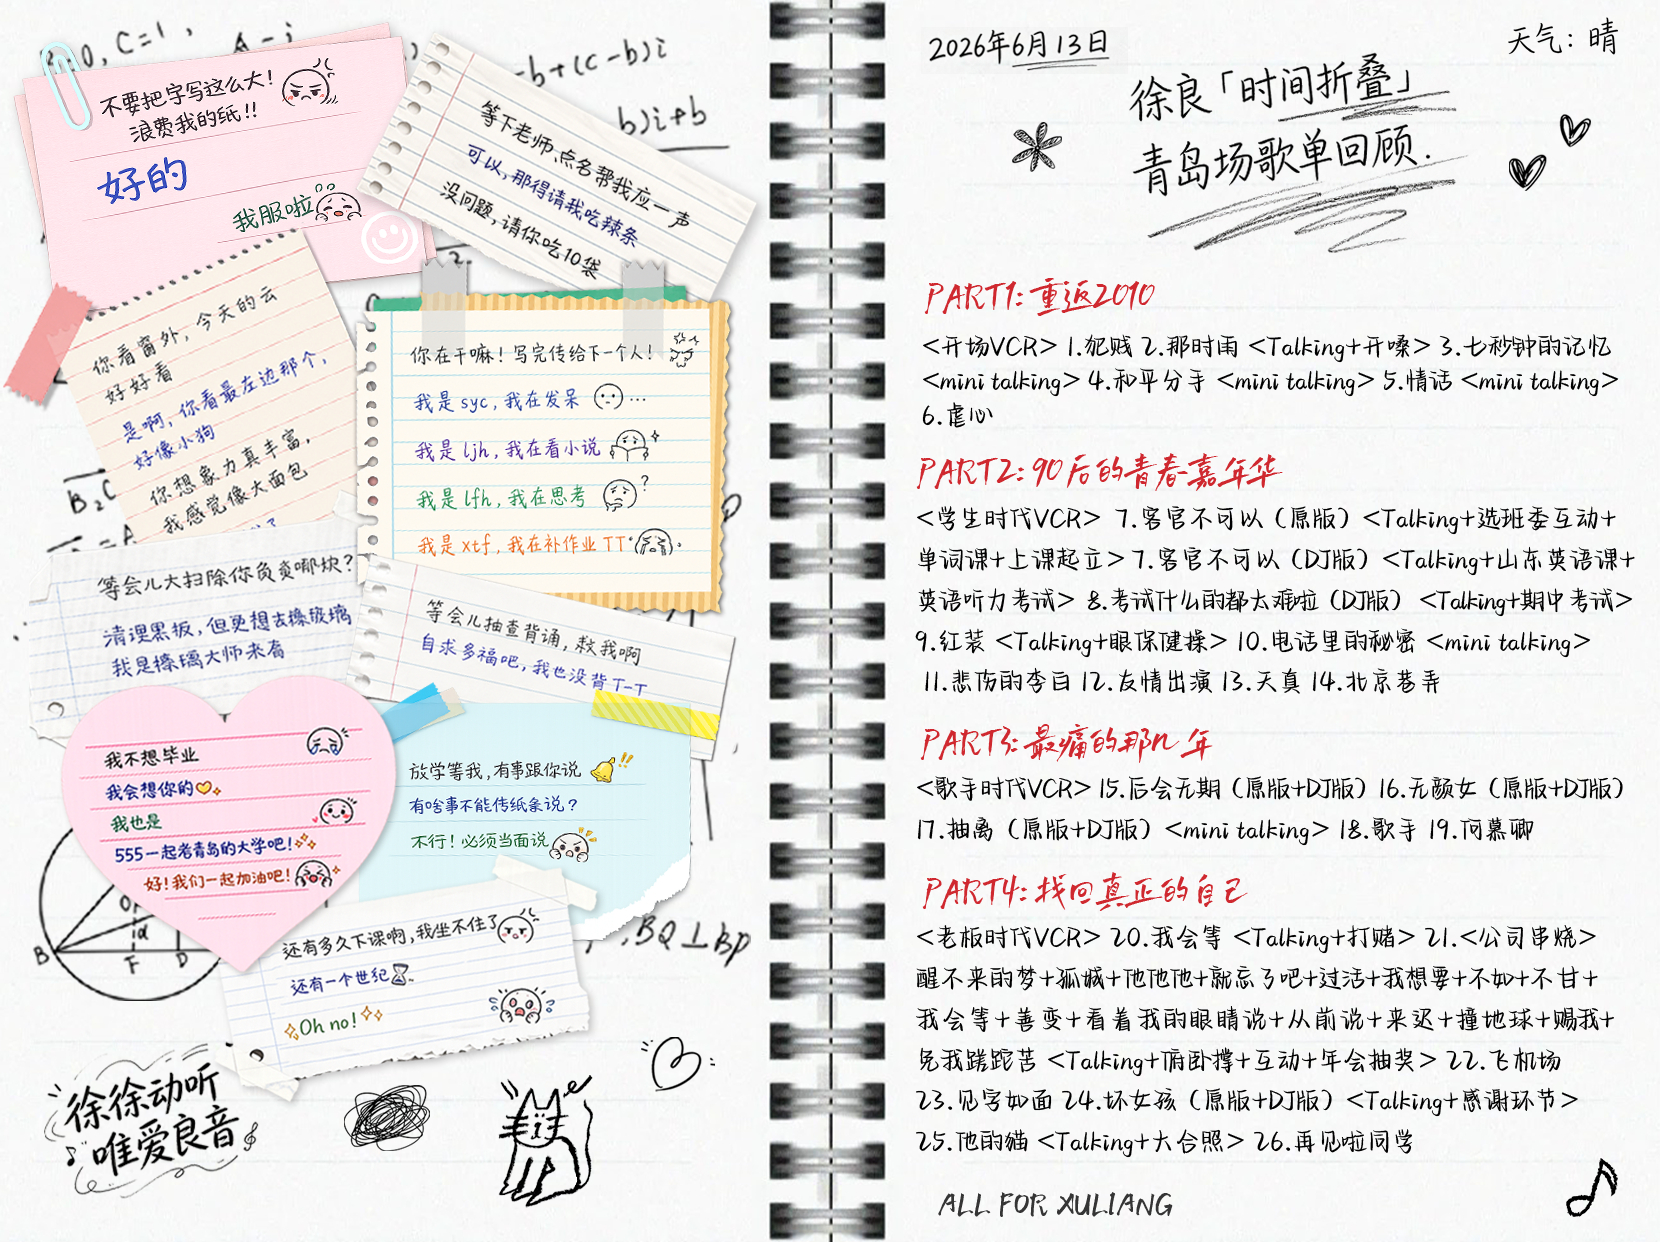 不要把字写这么大！
浪费我的纸!!
好的
我服啦
等下老师点名帮我应一声
可以，那得请我吃辣条
没问题，请你吃10袋
你看窗外，今天的云
好好看
是啊，你看最左边那个，
好像小狗
你想象力真丰富，
我感觉像大面包
你在干嘛！写完传给下一个人！
我是 syc，我在发呆
我是 ljh，我在看小说
我是 lfh，我在思考
我是 xtf，我在补作业 TT
等会儿大扫除你负责哪块？
清理黑板，但更想去擦玻璃
我是擦璃大师来着
等会儿抽查背诵，救我啊
自求多福吧，我也没背 T-T
我不想毕业
我会想你的
我也是
555一起考青岛的大学吧！
好！我们一起加油吧！
放学等我，有事跟你说
有啥事不能传纸条说？
不行！必须当面说
还有多久下课啊，我坐不住了
还有一个世纪
Oh no!
C=1，
-b+(c-b)i
b)i+b
B
F
D
,BQ⊥BP
徐徐动听
唯爱良音
2026年6月13日
天气：晴
徐良「时间折叠」
青岛场歌单回顾.
PART1: 重返2010
<开场VCR> 1.犯贱 2.那时雨 <Talking+开嗓> 3.七秒钟的记忆
<mini talking> 4.和平分手 <mini talking> 5.情话 <mini talking>
6.虐心
PART2: 90后的青春嘉年华
<学生时代VCR> 7.客官不可以（原版）<Talking+选班委互动+
单词课+上课起立> 7.客官不可以（DJ版）<Talking+山东英语课+
英语听力考试> 8.考试什么的都太难啦（DJ版）<Talking+期中考试>
9.红装 <Talking+眼保健操> 10.电话里的秘密 <mini talking>
11.悲伤的李白 12.友情出演 13.天真 14.北京巷弄
PART3: 最痛的那n年
<歌手时代VCR> 15.后会无期（原版+DJ版）16.无颜女（原版+DJ版）
17.抽离（原版+DJ版）<mini talking> 18.歌手 19.何慕卿
PART4: 找回真正的自己
<老板时代VCR> 20.我会等 <Talking+打赌> 21.<公司串烧>
醒不来的梦+孤城+他他他+就忘了吧+过活+我想要+不如+不甘+
我会等+善变+看着我的眼睛说+从前说+来迟+撞地球+赐我+
免我蹉跎苦 <Talking+俯卧撑+互动+年会抽奖> 22.飞机场
23.见字如面 24.坏女孩（原版+DJ版）<Talking+感谢环节>
25.他的猫 <Talking+大合照> 26.再见啦同学
ALL FOR XULIANG